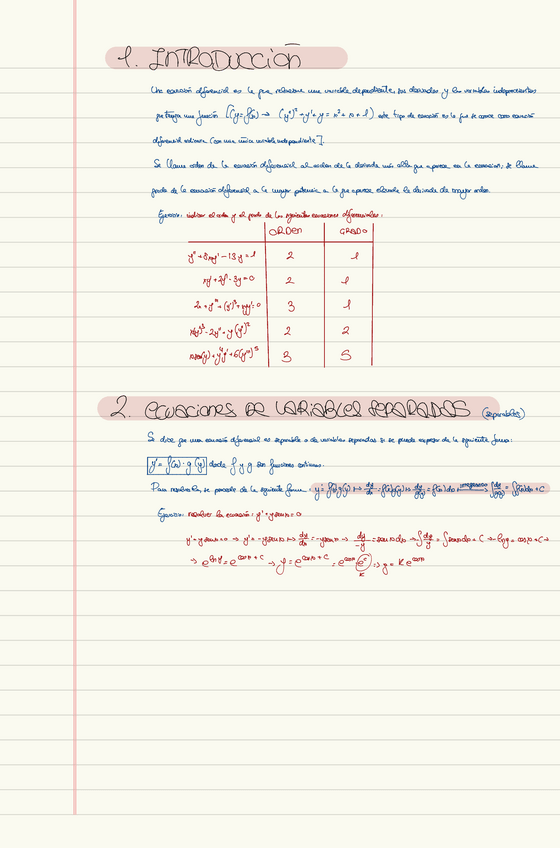 1. INTRODUCCIÓN
Una ecuación diferencial es la que relaciona una variable dependiente, sus derivadas y las variables independientes
que tenga una función [(y=f(x) → (y'')² + y' + y = x² + x + 1) este tipo de ecuación es la que se conoce como ecuación
diferencial ordinaria (con una única variable independiente)].
Se llama orden de la ecuación diferencial al orden de la derivada más alta que aparece en la ecuación; se llama
grado de la ecuación diferencial a la mayor potencia a la que aparece elevada la derivada de mayor orden.
Ejercicio: indicar el orden y el grado de las siguientes ecuaciones diferenciales:
ORDEN GRADO
2 1
2 1
3 1
2 2
3 5
2. ECUACIONES DE VARIABLES SEPARADAS (separables)
Se dice que una ecuación diferencial es separable o de variables separadas si se puede expresar de la siguiente forma:
y' = f(x) · g(y) donde f y g son funciones continuas.
Para resolverla, se procede de la siguiente forma = y' = f(x)g(y) ↦ dy/dx = f(x)g(y) ↦ dy/g(y) = f(x)dx integramos → ∫dy/g(y) = ∫f(x)dx + C
Ejercicio: resolver la ecuación: y' + y senx = 0
y' + y senx = 0 → y' = -y senx ↦ dy/dx = -y senx → dy/-y = senx dx → -∫dy/y = ∫senx dx + C → -log y = -cosx + C →
→ e^(log y) = e^(cosx + C) → y = e^(cosx + C) = e^(cosx) e^c K → y = K e^(cosx)